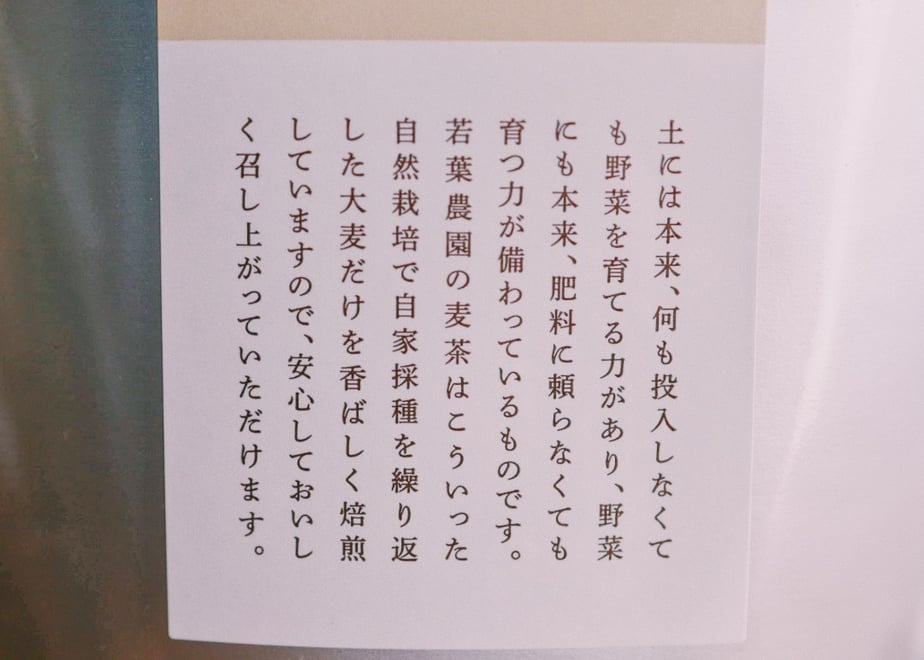 土には本来、何も投入しなくて
も野菜を育てる力があり、野菜
にも本来、肥料に頼らなくても
育つ力が備わっているものです。
若葉農園の麦茶はこういった
自然栽培で自家採種を繰り返
した大麦だけを香ばしく焙煎
していますので、安心しておいし
く召し上がっていただけます。